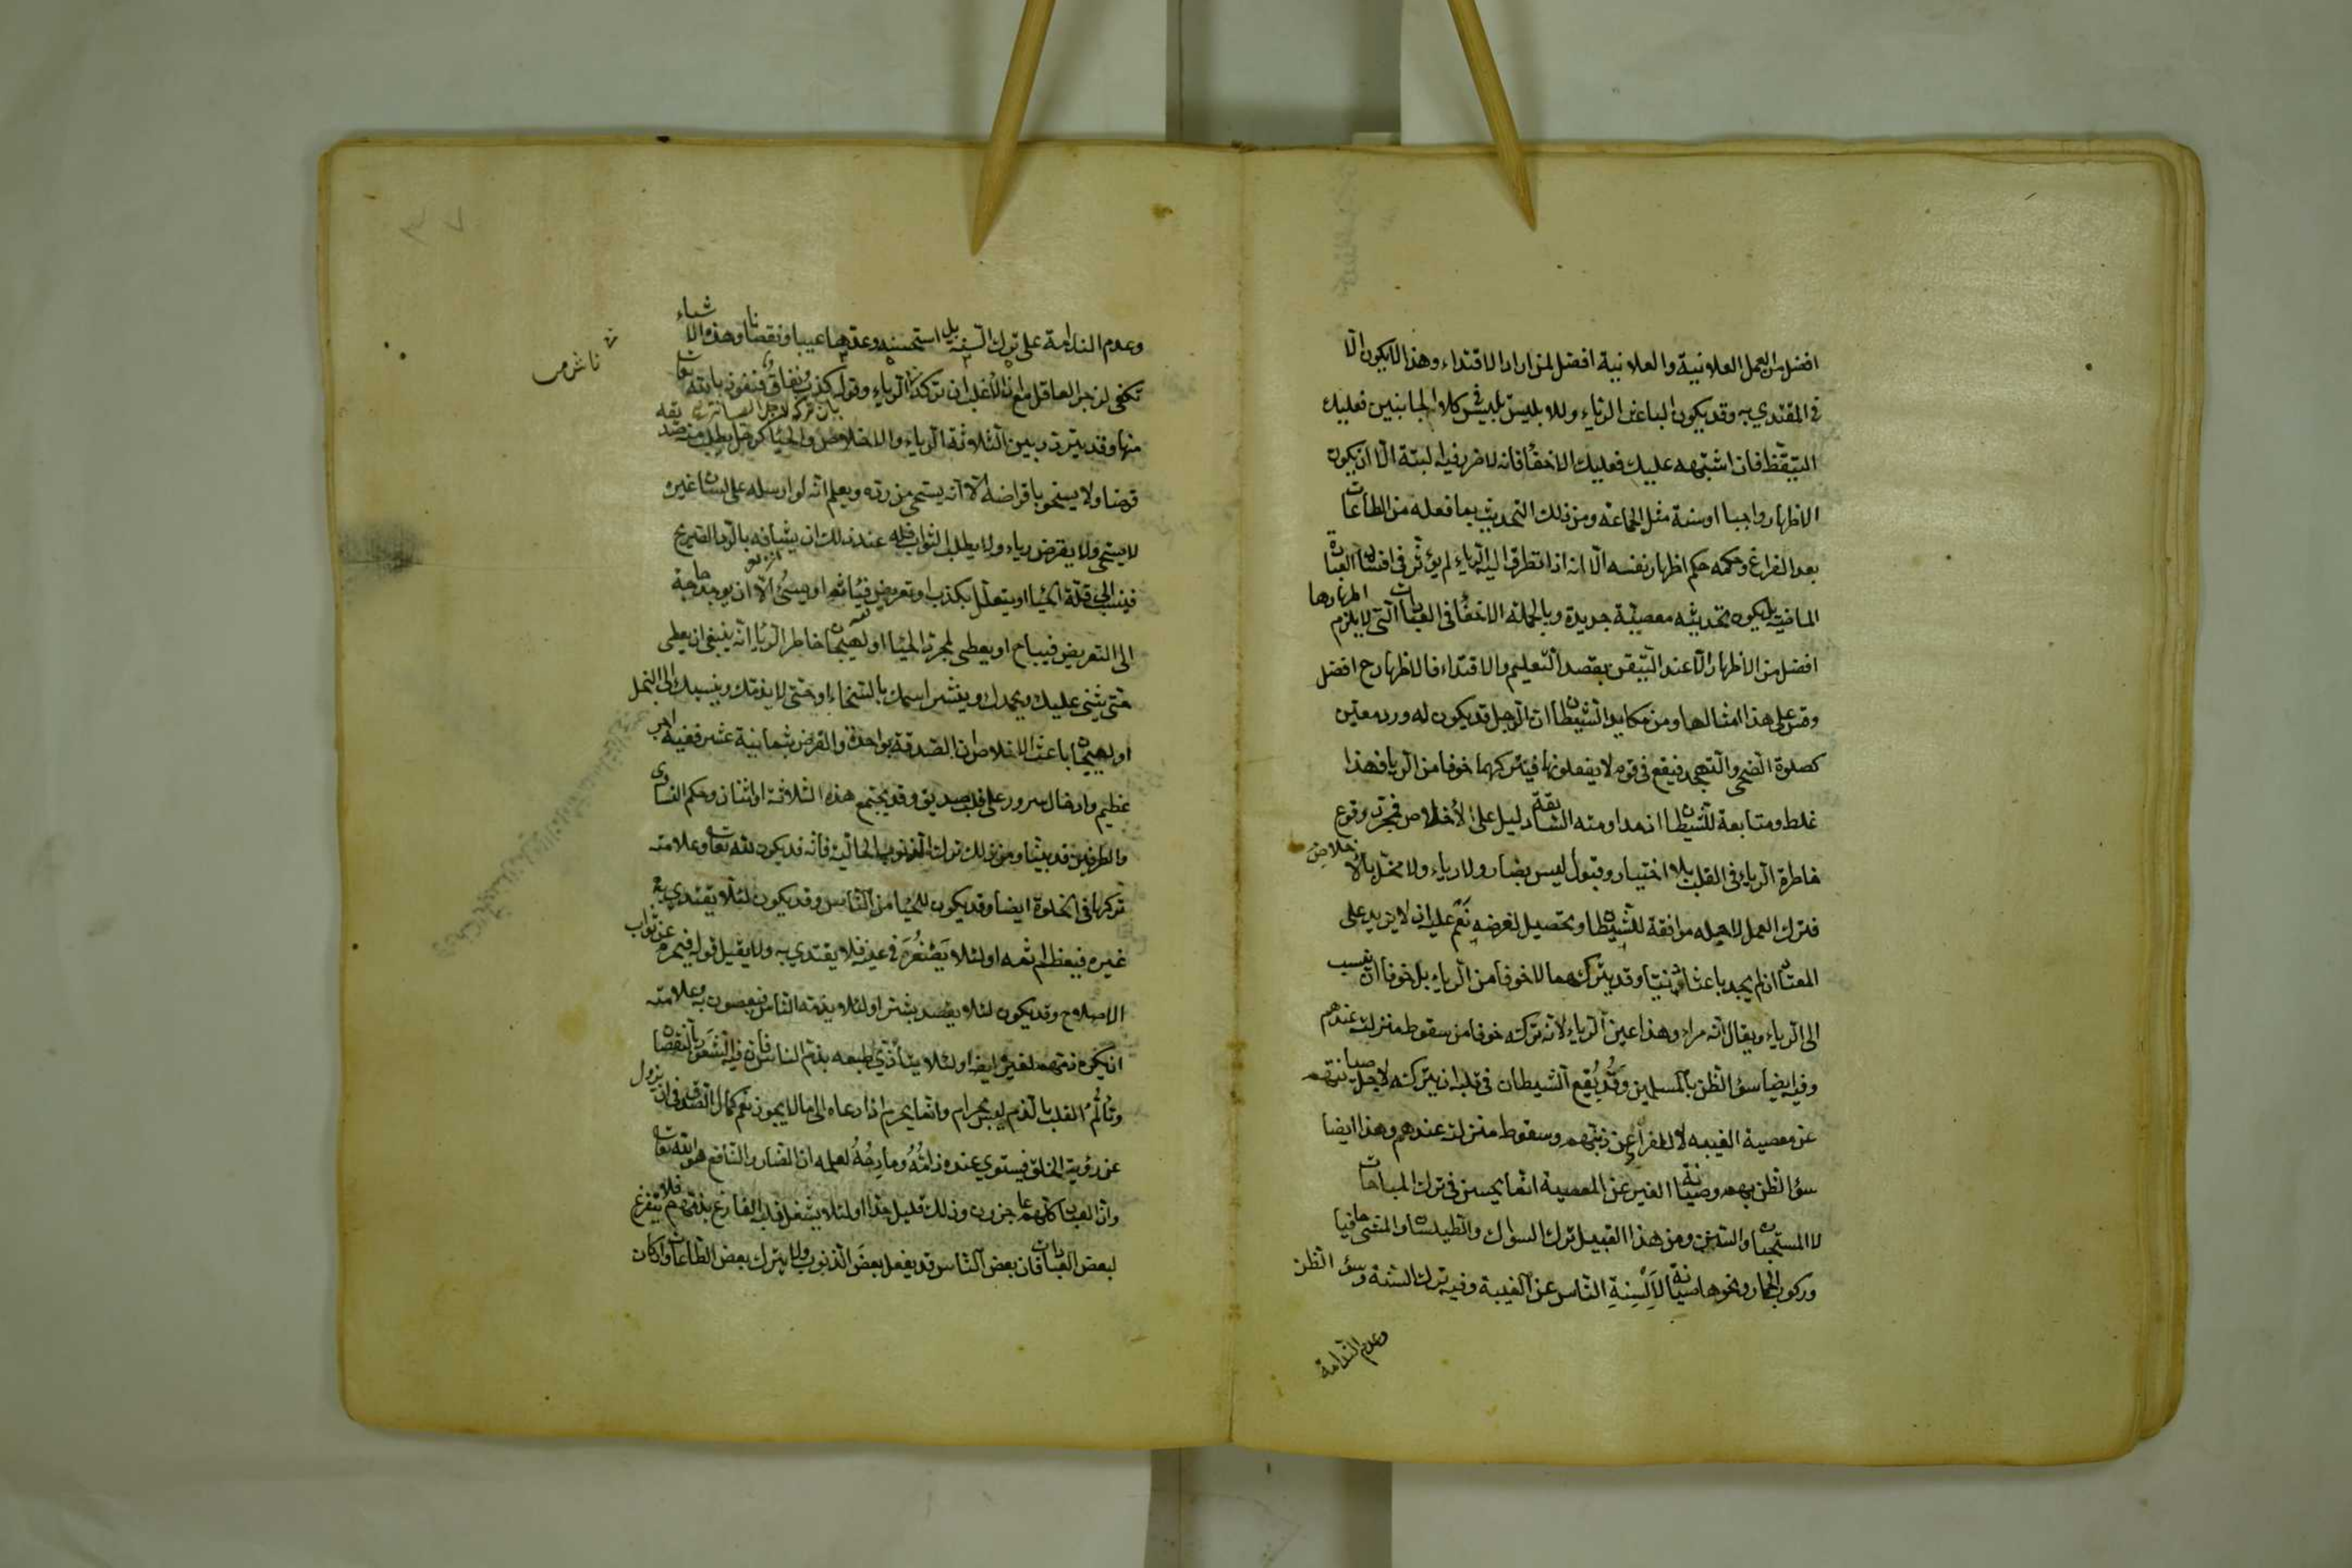 افضل من العمل العلانية والعلانية افضل لمن اراد الاقتداء وهذا لا يكون الا
في المقتدي به وقد يكون الباعث الرياء وللابليس تلبيس في كلا الجانبين فعليك
التيقظ فان اشتبه عليك فعليك الاخفأ فانه لا ضرر فيه البتة الا ان يكون
الاظهار واجبا او سنة مثل الجماعة ومن ذلك التحديث بما فعله من الطاعات
بعد الفراغ وحكمه حكم اظهار نفسه الا انه اذا تطرق اليه الرياء لم يؤثر في افساد العبادة
الماضية بل يكون تحديثه معصية جديدة وبالجملة الاخفأ في العبادات التي لا يلزم اظهارها
افضل من الاظهار الا عند التيقن بقصد التعليم والاقتداء فالاظهار ح افضل
وقس على هذا امثالها ومن مكايد الشيطان ان الرجل قد يكون له ورد معين
كصلوة الضحى والتهجد فيقع في قوم لا يفعلونها فيتركهما خوفا من الريا فهذا
غلط ومتابعة للشيطان اذ مداومته السابقة دليل على الاخلاص فمجرد وقوع
خاطرة الرياء في القلب بلا اختيار وقبول ليس بضار ولا رياء ولا مخل بالاخلاص
فترك العمل لاجله موافقة للشيطان وتحصيل لغرضه نعم عليه ان لا يزيد على
المعتاد ان لم يجد باعثا دينيا وقد يتركهما لا خوفا من الرياء بل خوفا ان ينسب
الى الرياء ويقال انه مراء وهذا عين الرياء لانه تركه خوفا من سقوط منزلته عندهم
وفيه ايضا سؤ الظن بالمسلمين وقد يُقِع الشيطان في قلبه ان يتركه لاجل صيانتهم
عن معصية الغيبه لا لفراره عن ذمهم وسقوط منزلته عندهم وهذا ايضا
سؤ الظن بهم وصيانة الغير عن المعصية انما يحسن في ترك المباحات
لا المستحبات والسنن ومن هذا القبيل ترك السواك والطيلسان والمشي حافيا
وركوب الحمار ونحوها صيانة لاَلْسِنةِ الناس عن الغيبة وفيه ترك السنة وسؤ الظن
وعدم الندامة
وعدم الندامة على ترك السنة بل استحسنه وعدها عيبا ونقصانا وهذه الاشياء
تكفي لزجر العاقل مع ان الاغلب ان تركه الرياء وقوله كذب ونفاق فنعوذ بالله تعالى
منها وقد يتردد بين الثلاثة الرياء والاخلاص والحيأ كرجل يطلب منه صديقه
قرضا ولا يسخو باقراضه الا انه يستحي من رده ويعلم انه لو ارسله على لسان غيره
لا يستحي ولا يقرض رياء ولا يطلب الثواب فله عند ذلك ان يشافه بالرد الصريح
فينسب الى قلة الحيأ او يتعلل بكذب او تعريض فيأثم او يسئ الا ان يوجد حاجة
الى التعريض فيباح او يعطي لمجرد الحيأ او لهيجان خاطر الرياء انه ينبغي ان يعطي
حتى يثني عليك ويحمدك وينشر اسمك بالسخاء او حتى لا يذمك وينسبك الى البخل
او لهيجان باعث الاخلاص ان الصدقة بواحدة والقرض بثمانية عشر ففيه اجر
عظيم وادخال سرور على قلب صديق وقد يجتمع هذه الثلاثة او اثنان وحكم التساوي
والطرفين قد بينا ومن ذلك ترك الذنوب الحالية فانه قد يكون لله تعالى وعلامته
تركها في الخلوة ايضا وقد يكون للحيأ من الناس وقد يكون لئلا يقتدي به
غيره فيعظم اثمه او لئلا يَصْغُرَ في عينه فلا يقتدي به ولا يقبل قوله فيحرم عن ثواب
الاصلاح وقد يكون لئلا يقصد بشر او لئلا يذمه الناس فيعصون به وعلامته
ان يكره ذمهم لغيره ايضا او لئلا يتأذي طبعه بذم الناس فان فيه الشعور بالنقصان
وتألُّم القلب بالذم ليس بحرام وانما يحرم اذا دعاه الى ما لا يجوز نعم كمال الصدق في ان يزول
عن رؤية الخلق فيستوي عنده ذامُّهُ ومادِحُهُ لعلمه ان الضار والنافع هو الله تعالى
وان العباد كلهم عاجزون وذلك قليل جدا او لئلا يشغل قلبه الفارغ بذمهم فلا يتفرغ
لبعض العبادات فان بعض الناس قد يفعل بعض الذنوب ولا يترك بعض الطاعات وان كان